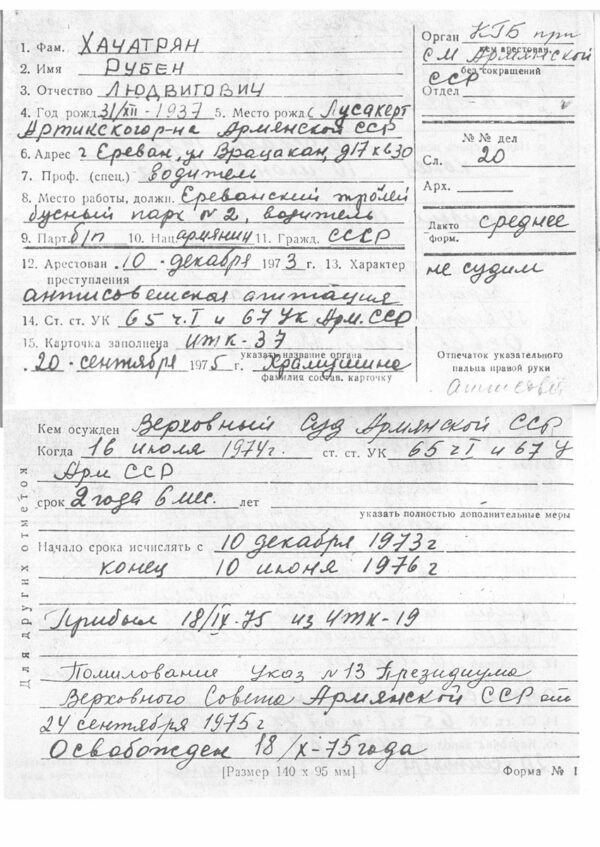 1. Фам. ХАЧАТРЯН
2. Имя РУБЕН
3. Отчество ЛЮДВИГОВИЧ
4. Год рожд. 31/XII-1937 5. Место рожд. С Лусакерт
Артикского р-на Армянской ССР
6. Адрес г Ереван, ул Врацакан, д17 кв30
7. Проф. (спец.) водитель
8. Место работы, должн. Ереванский троллей
бусный парк №2, водитель
9. Парт. б/п 10. Нац. армянин 11. Гражд. СССР
12. Арестован „10“ декабря 1973 г. 13. Характер
преступления
антисоветская агитация
14. Ст. ст. УК 65 ч.I и 67 УК Арм. ССР
15. Карточка заполнена ИТК-37
указать название органа
„20“ сентября 1975 г. Храмушина
фамилия состав. карточку
Орган КГБ при
кем арестован,
СМ Армянской
без сокращений
ССР
Отдел
№ № дел
Сл. 20
Арх.
Дакто форм. среднее
не судим
Отпечаток указательного
пальца правой руки
Для других отметок
Кем осужден Верховный Суд Армянской ССР
Когда 16 июля 1974г. ст. ст. УК 65 чI и 67 У
Арм ССР
срок 2 года 6 мес. лет
указать полностью дополнительные меры
Начало срока исчислять с 10 декабря 1973 г
конец 10 июня 1976 г
Прибыл 18/IX-75 из ИТК-19
Помилование Указ №13 Президиума
Верховного Совета Армянской ССР от
24 сентября 1975 г
Освобожден 18/X-75 года
[Размер 140 х 95 мм] Форма № 1